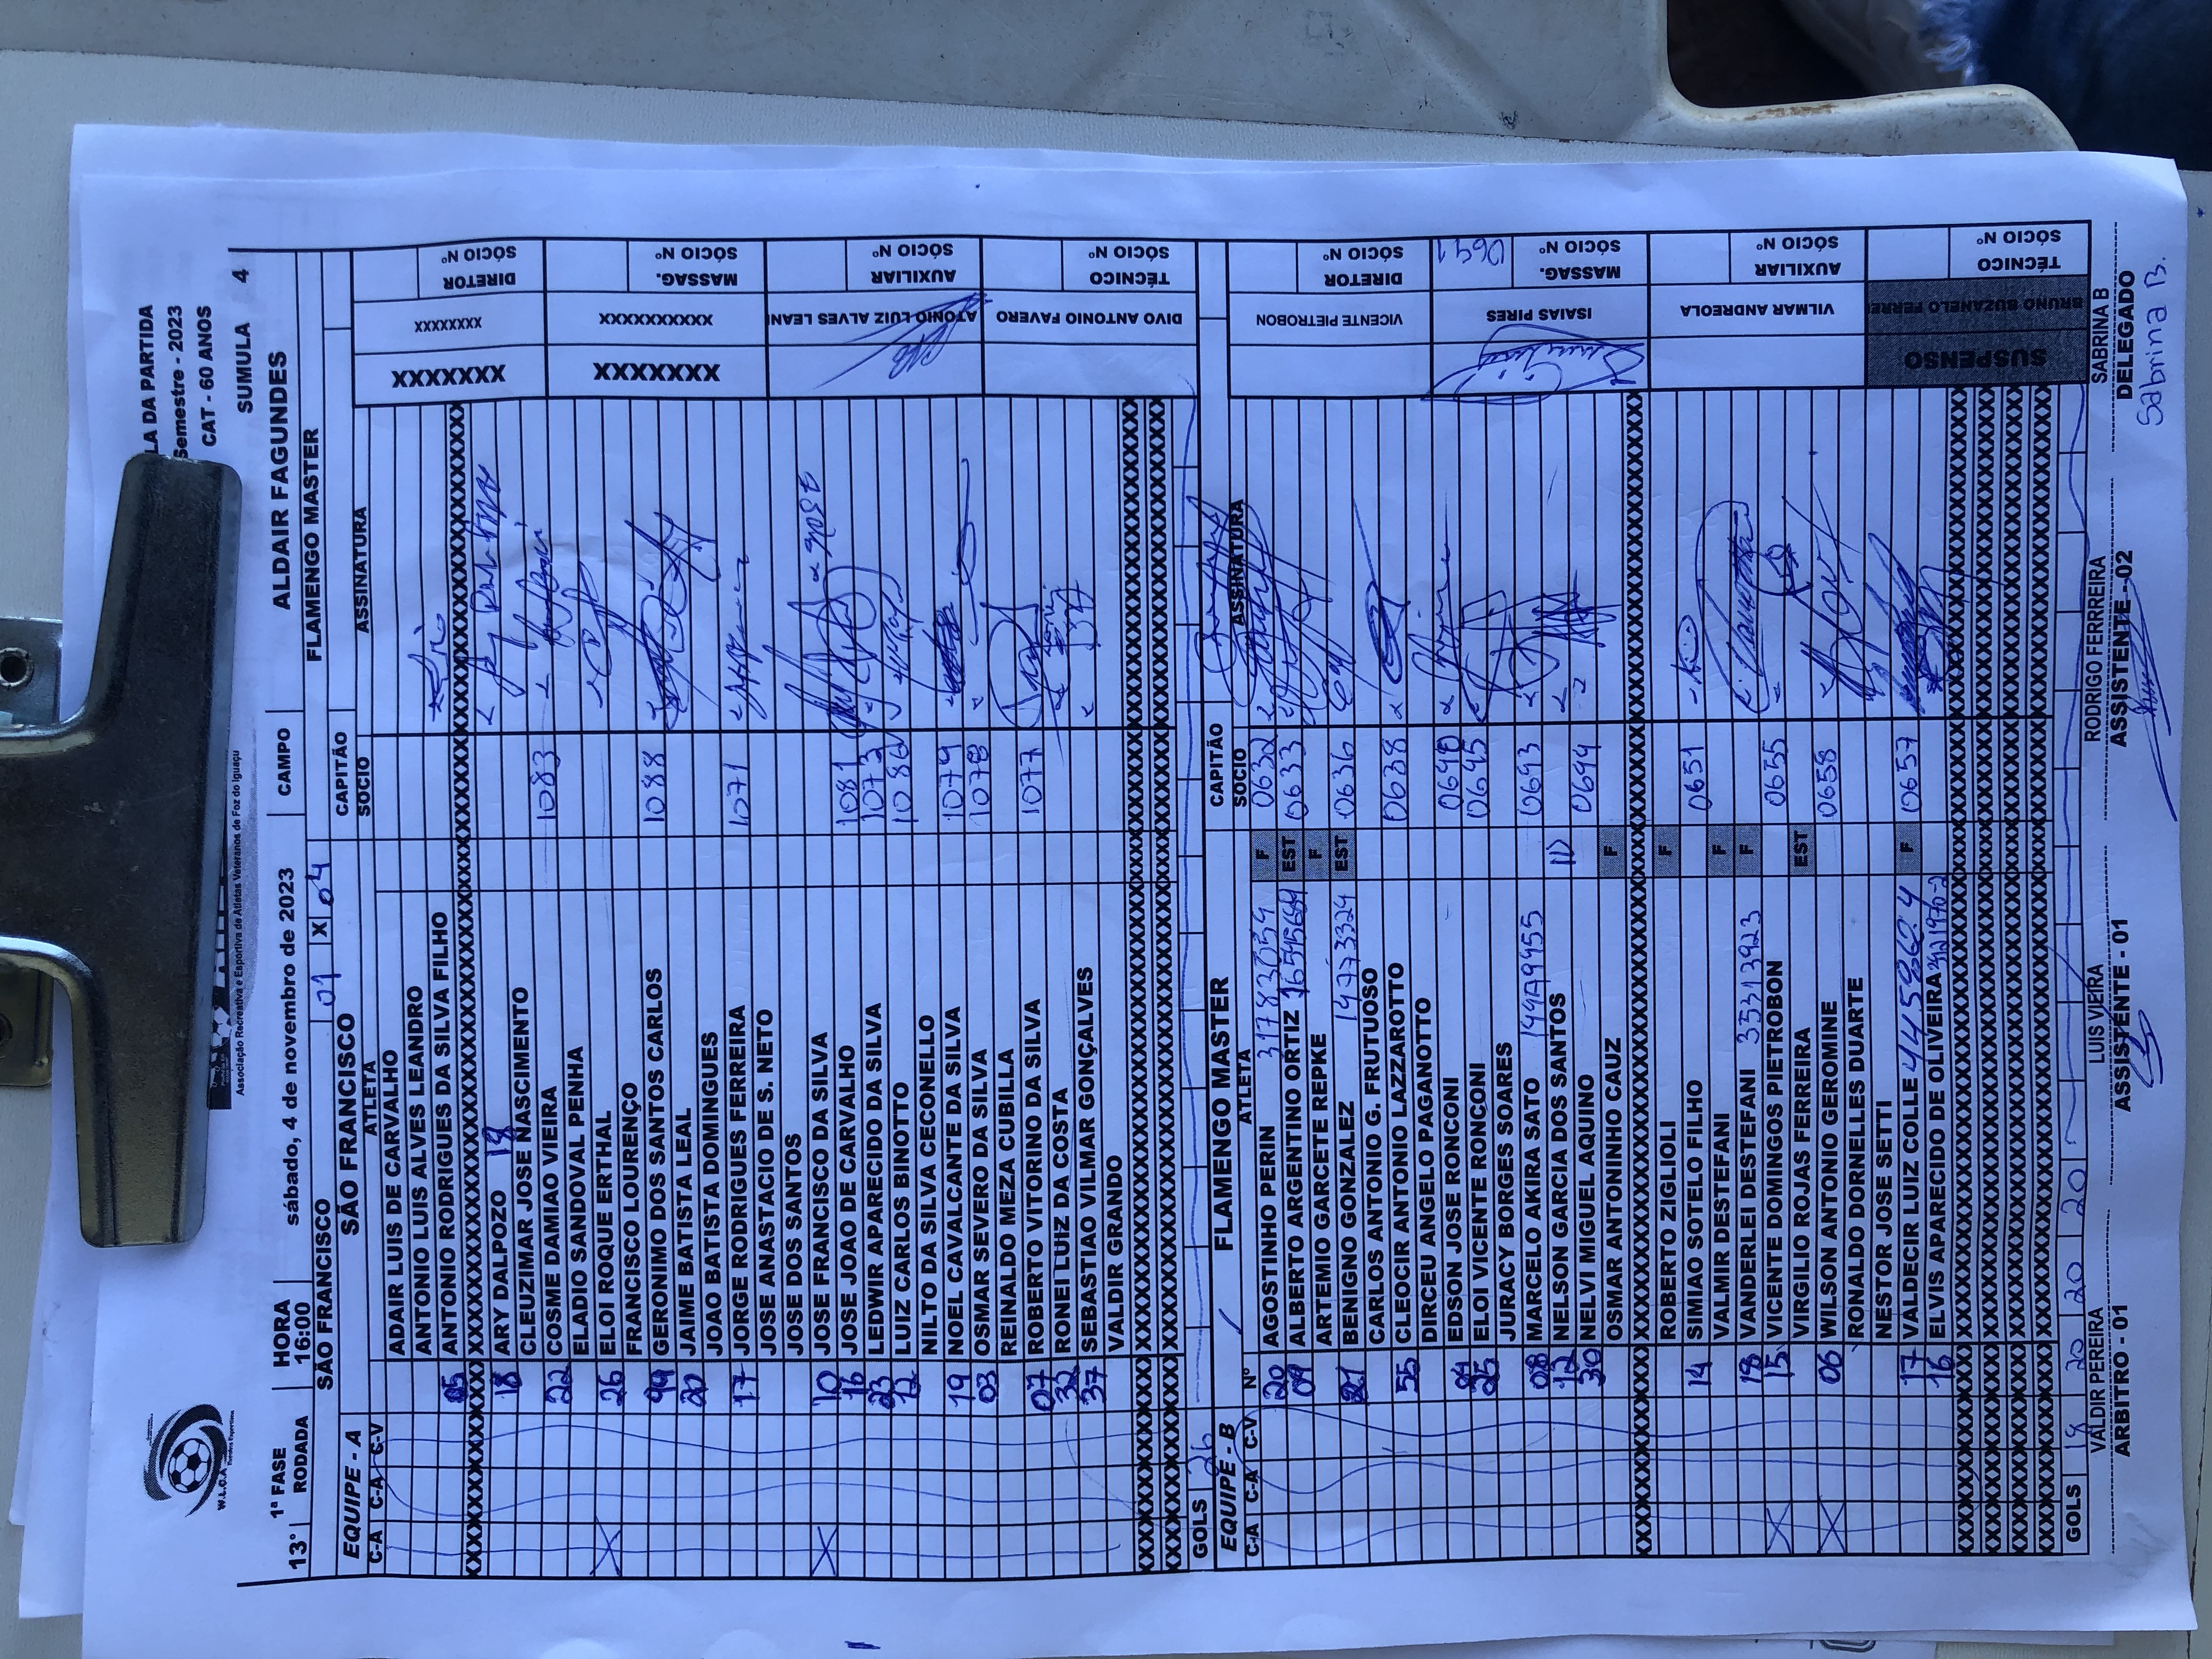 W.L.C.A
LA DA PARTIDA
Semestre - 2023
CAT - 60 ANOS
Associação Recreativa e Esportiva de Atletas Veteranos de Foz do Iguaçu
SUMULA 4
13° 1ª FASE HORA sábado, 4 de novembro de 2023 CAMPO ALDAIR FAGUNDES
RODADA 16:00
SÃO FRANCISCO 01 X 04 FLAMENGO MASTER
EQUIPE - A SÃO FRANCISCO CAPITÃO
C-A C-A C-V ATLETA SOCIO ASSINATURA
ADAIR LUIS DE CARVALHO
ANTONIO LUIS ALVES LEANDRO
05 ANTONIO RODRIGUES DA SILVA FILHO
18 ARY DALPOZO 18
CLEUZIMAR JOSE NASCIMENTO
22 COSME DAMIAO VIEIRA 1083
ELADIO SANDOVAL PENHA
X 26 ELOI ROQUE ERTHAL
FRANCISCO LOURENÇO
99 GERONIMO DOS SANTOS CARLOS 1088
20 JAIME BATISTA LEAL
JOAO BATISTA DOMINGUES
17 JORGE RODRIGUES FERREIRA 1071
JOSE ANASTACIO DE S. NETO
JOSE DOS SANTOS
X 10 JOSE FRANCISCO DA SILVA
16 JOSE JOAO DE CARVALHO 1081
23 LEDWIR APARECIDO DA SILVA 1073
12 LUIZ CARLOS BINOTTO 1086
NILTO DA SILVA CECONELLO
19 NOEL CAVALCANTE DA SILVA 1079
03 OSMAR SEVERO DA SILVA 1078
REINALDO MEZA CUBILLA
07 ROBERTO VITORINO DA SILVA 1077
32 RONEI LUIZ DA COSTA
37 SEBASTIAO VILMAR GONÇALVES
VALDIR GRANDO
GOLS 26
XXXXXXX XXXXXXXX DIRETOR SÓCIO Nº
XXXXXXX XXXXXXXXXX MASSAG. SÓCIO N
ATONIO LUIZ ALVES LEAN AUXILIAR SÓCIO Nº
DIVO ANTONIO FAVERO TÉCNICO SÓCIO Nº
EQUIPE - B FLAMENGO MASTER CAPITÃO
C-A C-A C-V Nº ATLETA SOCIO ASSINATURA
20 AGOSTINHO PERIN 31783059 F 0632
09 ALBERTO ARGENTINO ORTIZ EST 0633
ARTEMIO GARCETE REPKE F
21 BENIGNO GONZALEZ 14773324 EST 0636
CARLOS ANTONIO G. FRUTUOSO
55 CLEOCIR ANTONIO LAZZAROTTO 0638
DIRCEU ANGELO PAGANOTTO
EDSON JOSE RONCONI 0640
25 ELOI VICENTE RONCONI 0645
JURACY BORGES SOARES
08 MARCELO AKIRA SATO 0693
12 NELSON GARCIA DOS SANTOS
30 NELVI MIGUEL AQUINO 0694
OSMAR ANTONINHO CAUZ F
ROBERTO ZIGLIOLI F
14 SIMIAO SOTELO FILHO 0651
VALMIR DESTEFANI F
18 VANDERLEI DESTEFANI 35313923 F
X 15 VICENTE DOMINGOS PIETROBON 0655
VIRGILIO ROJAS FERREIRA EST
X 06 WILSON ANTONIO GEROMINE 0658
RONALDO DORNELLES DUARTE
NESTOR JOSE SETTI
17 VALDECIR LUIZ COLLE F 0657
16 ELVIS APARECIDO DE OLIVEIRA
GOLS 18 20 20 20
VICENTE PIETROBON DIRETOR SÓCIO Nº
ISAIAS PIRES MASSAG. SÓCIO Nº 0641
VILMAR ANDREOLA AUXILIAR SÓCIO Nº
SUSPENSO BRUNO BUZANELO FERRE TÉCNICO SÓCIO Nº
VALDIR PEREIRA LUIS VIEIRA RODRIGO FERREIRA SABRINA B
ARBITRO - 01 ASSISTENTE - 01 ASSISTENTE - 02 DELEGADO
Sabrina B.